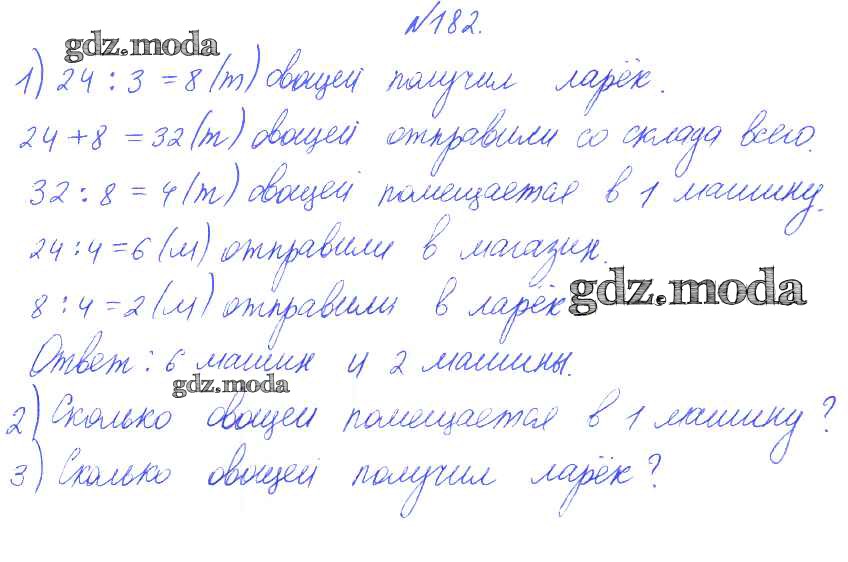 №182.
gdz.moda
1) 24 : 3 = 8 (т) овощей получил ларёк.
24 + 8 = 32 (т) овощей отправили со склада всего.
32 : 8 = 4 (т) овощей помещается в 1 машину.
24 : 4 = 6 (м) отправили в магазин.
8 : 4 = 2 (м) отправили в ларёк
gdz.moda
Ответ: 6 машин и 2 машины.
gdz.moda
2) Сколько овощей помещается в 1 машину?
3) Сколько овощей получил ларёк?